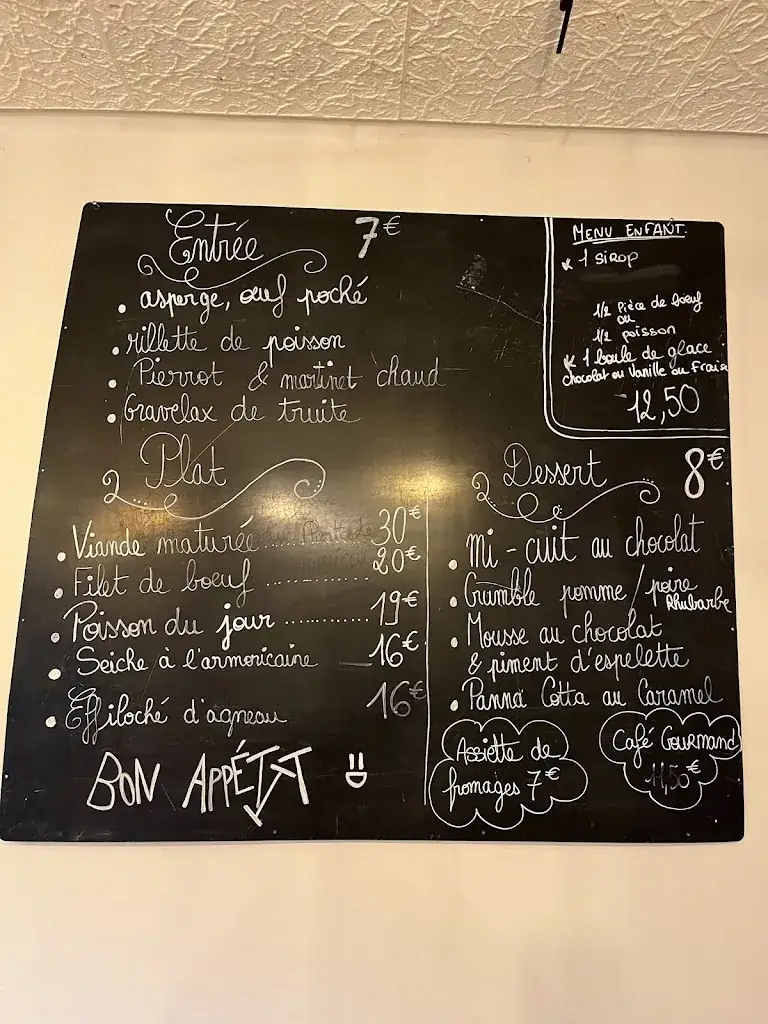 Entrée 7€
• asperge, œuf poché
• rillette de poisson
• Pierrot & martinet chaud
• Gravelax de truite
MENU ENFANT.
1 sirop
1/2 Pièce de boeuf
ou
1/2 poisson
1 boule de glace
chocolat ou Vanille ou Fraise
12,50
Plat
• Viande maturée 30€
• Filet de boeuf ............ 20€
• Poisson du jour ............ 19€
• Seiche à l'armoricaine 16€
• Effiloché d'agneau 16€
BON APPÉTIT
Dessert 8€
• Mi-cuit au chocolat
• Crumble pomme / poire
Rhubarbe
• Mousse au chocolat
& piment d'espelette
• Panna Cotta au Caramel
Assiette de
fromages 7€
Café Gourmand
11,50€